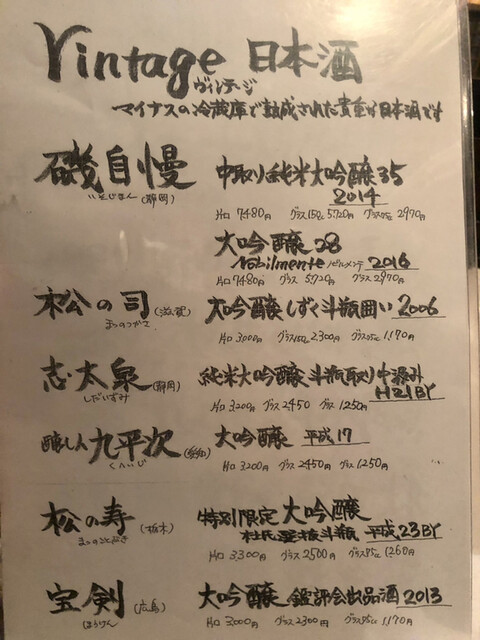 Vintage 日本酒
ヴィンテージ
マイナスの冷蔵庫で熟成された貴重な日本酒です
磯自慢 中取り純米大吟醸35
いそじまん (静岡) 2014
片口 7480円 グラス150cc 5720円 グラス75cc 2970円
大吟醸28
Nobilmente ノビルメンテ 2016
片口 7480円 グラス 5720円 グラス 2970円
松の司 (滋賀) 大吟醸しずく斗瓶囲い 2006
まつのつかさ
片口 3,000円 グラス150cc 2,300円 グラス75cc 1,170円
志太泉 (静岡) 純米大吟醸 斗瓶取り中汲み
しだいずみ H21BY
片口 3,200円 グラス 2450 グラス 1,250円
醸し人九平次 (愛知) 大吟醸 平成17
くへいじ
片口 3,200円 グラス 2450円 グラス 1,250円
松の寿 (栃木) 特別限定 大吟醸
まつのことぶき 杜氏選抜斗瓶 平成23BY
片口 3,300円 グラス 2500円 グラス85cc 1260円
宝剣 (広島) 大吟醸 鑑評会出品酒 2013
ほうけん
片口 3,000円 グラス 2300円 グラス85cc 1,170円